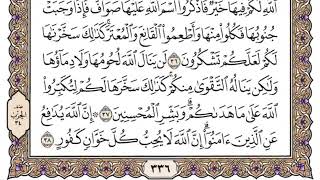 ٱللَّهِ لَكُمْ فِيهَا خَيْرٌ ۖ فَٱذْكُرُوا۟ ٱسْمَ ٱللَّهِ عَلَيْهَا صَوَآفَّ ۖ فَإِذَا وَجَبَتْ
جُنُوبُهَا فَكُلُوا۟ مِنْهَا وَأَطْعِمُوا۟ ٱلْقَانِعَ وَٱلْمُعْتَرَّ ۚ كَذَٰلِكَ سَخَّرْنَٰهَا
لَكُمْ لَعَلَّكُمْ تَشْكُرُونَ ٣٦ لَن يَنَالَ ٱللَّهَ لُحُومُهَا وَلَا دِمَآؤُهَا
وَلَٰكِن يَنَالُهُ ٱلتَّقْوَىٰ مِنكُمْ ۚ كَذَٰلِكَ سَخَّرَهَا لَكُمْ لِتُكَبِّرُوا۟
ٱللَّهَ عَلَىٰ مَا هَدَىٰكُمْ ۗ وَبَشِّرِ ٱلْمُحْسِنِينَ ٣٧ ۞ إِنَّ ٱللَّهَ يُدَٰفِعُ
عَنِ ٱلَّذِينَ ءَامَنُوٓا۟ ۗ إِنَّ ٱللَّهَ لَا يُحِبُّ كُلَّ خَوَّانٍ كَفُورٍ ٣٨
٣٣٦